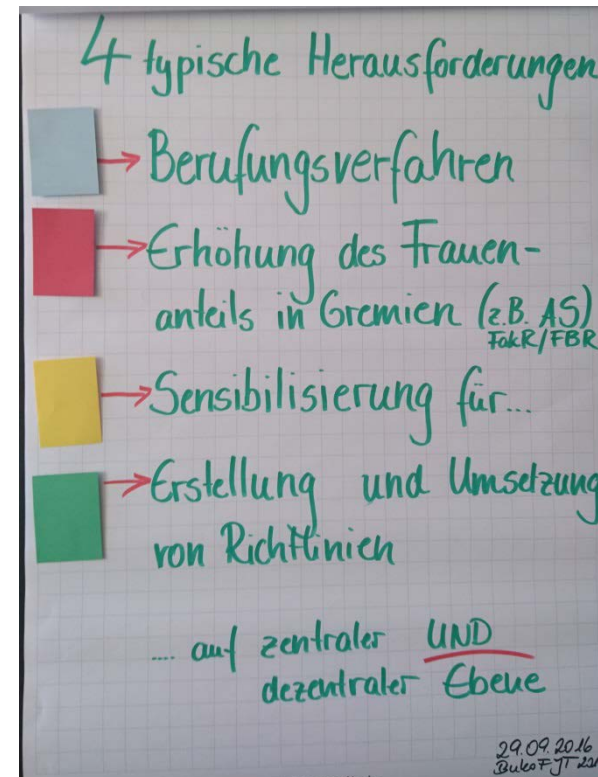 4 typische Herausforderungen
→ Berufungsverfahren
→ Erhöhung des Frauen-
anteils in Gremien (z.B. AS)
FakR/FBR
→ Sensibilisierung für...
→ Erstellung und Umsetzung
von Richtlinien
.... auf zentraler UND
dezentraler Ebene
29.09.2016
BukoF JT